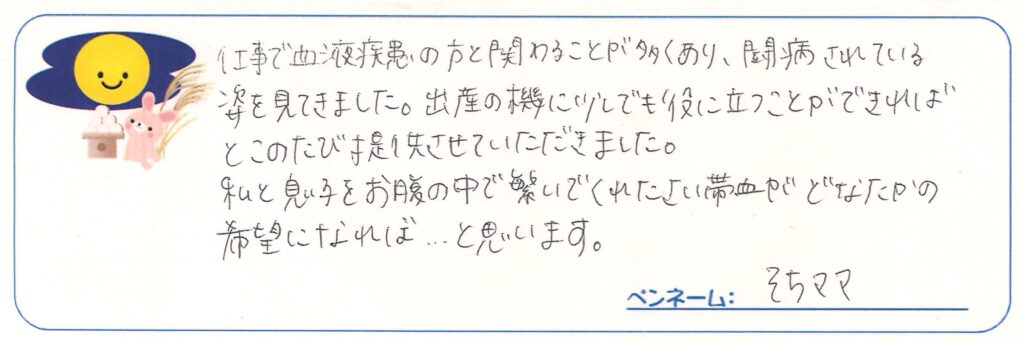 仕事で血液疾患の方と関わることが多くあり、闘病されている
姿を見てきました。出産の機に少しでも役に立つことができれば
とこのたび提供させていただきました。
私と息子をお腹の中で繋いでくれたさい帯血がどなたかの
希望になれば…と思います。
ペンネーム: そちママ